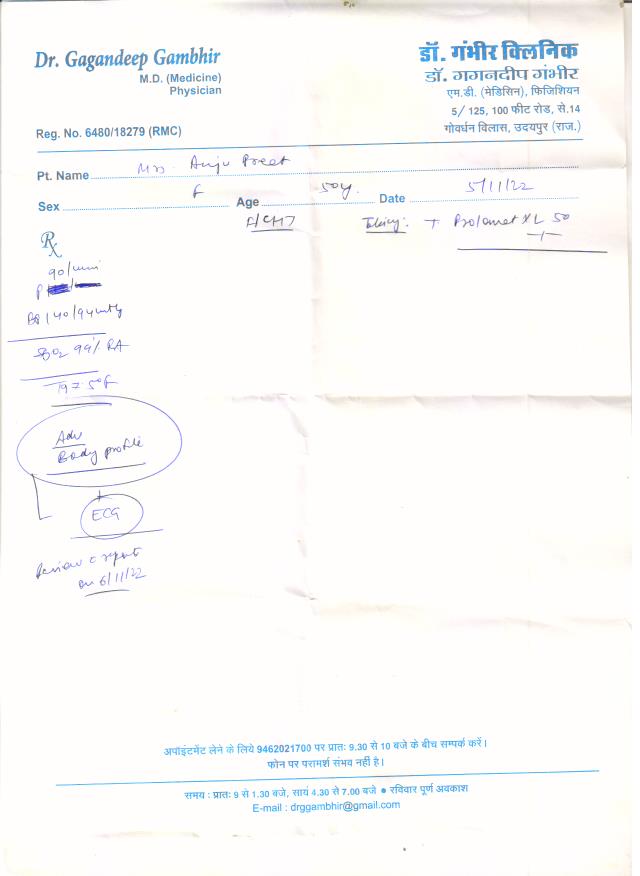 Dr. Gagandeep Gambhir
M.D. (Medicine)
Physician
Reg. No. 6480/18279 (RMC)
डॉ. गंभीर क्लिनिक
डॉ. गगनदीप गंभीर
एम.डी. (मेडिसिन), फिजिशियन
5/ 125, 100 फीट रोड, से.14
गोवर्धन विलास, उदयपुर (राज.)
Pt. Name Mrs. Anju Preet
Sex F Age 50y. Date 5/11/22
Rx
T Prolomet XL 50
90/min
P
BP 140/94
SPO2 99% RA
T97.50F
Adv
Body profile
+
ECG
Review c report
on 6/11/22
अपॉइंटमेंट लेने के लिये 9462021700 पर प्रातः 9.30 से 10 बजे के बीच सम्पर्क करें।
फोन पर परामर्श संभव नहीं है।
समय : प्रातः 9 से 1.30 बजे, सायं 4.30 से 7.00 बजे ● रविवार पूर्ण अवकाश
E-mail : drggambhir@gmail.com